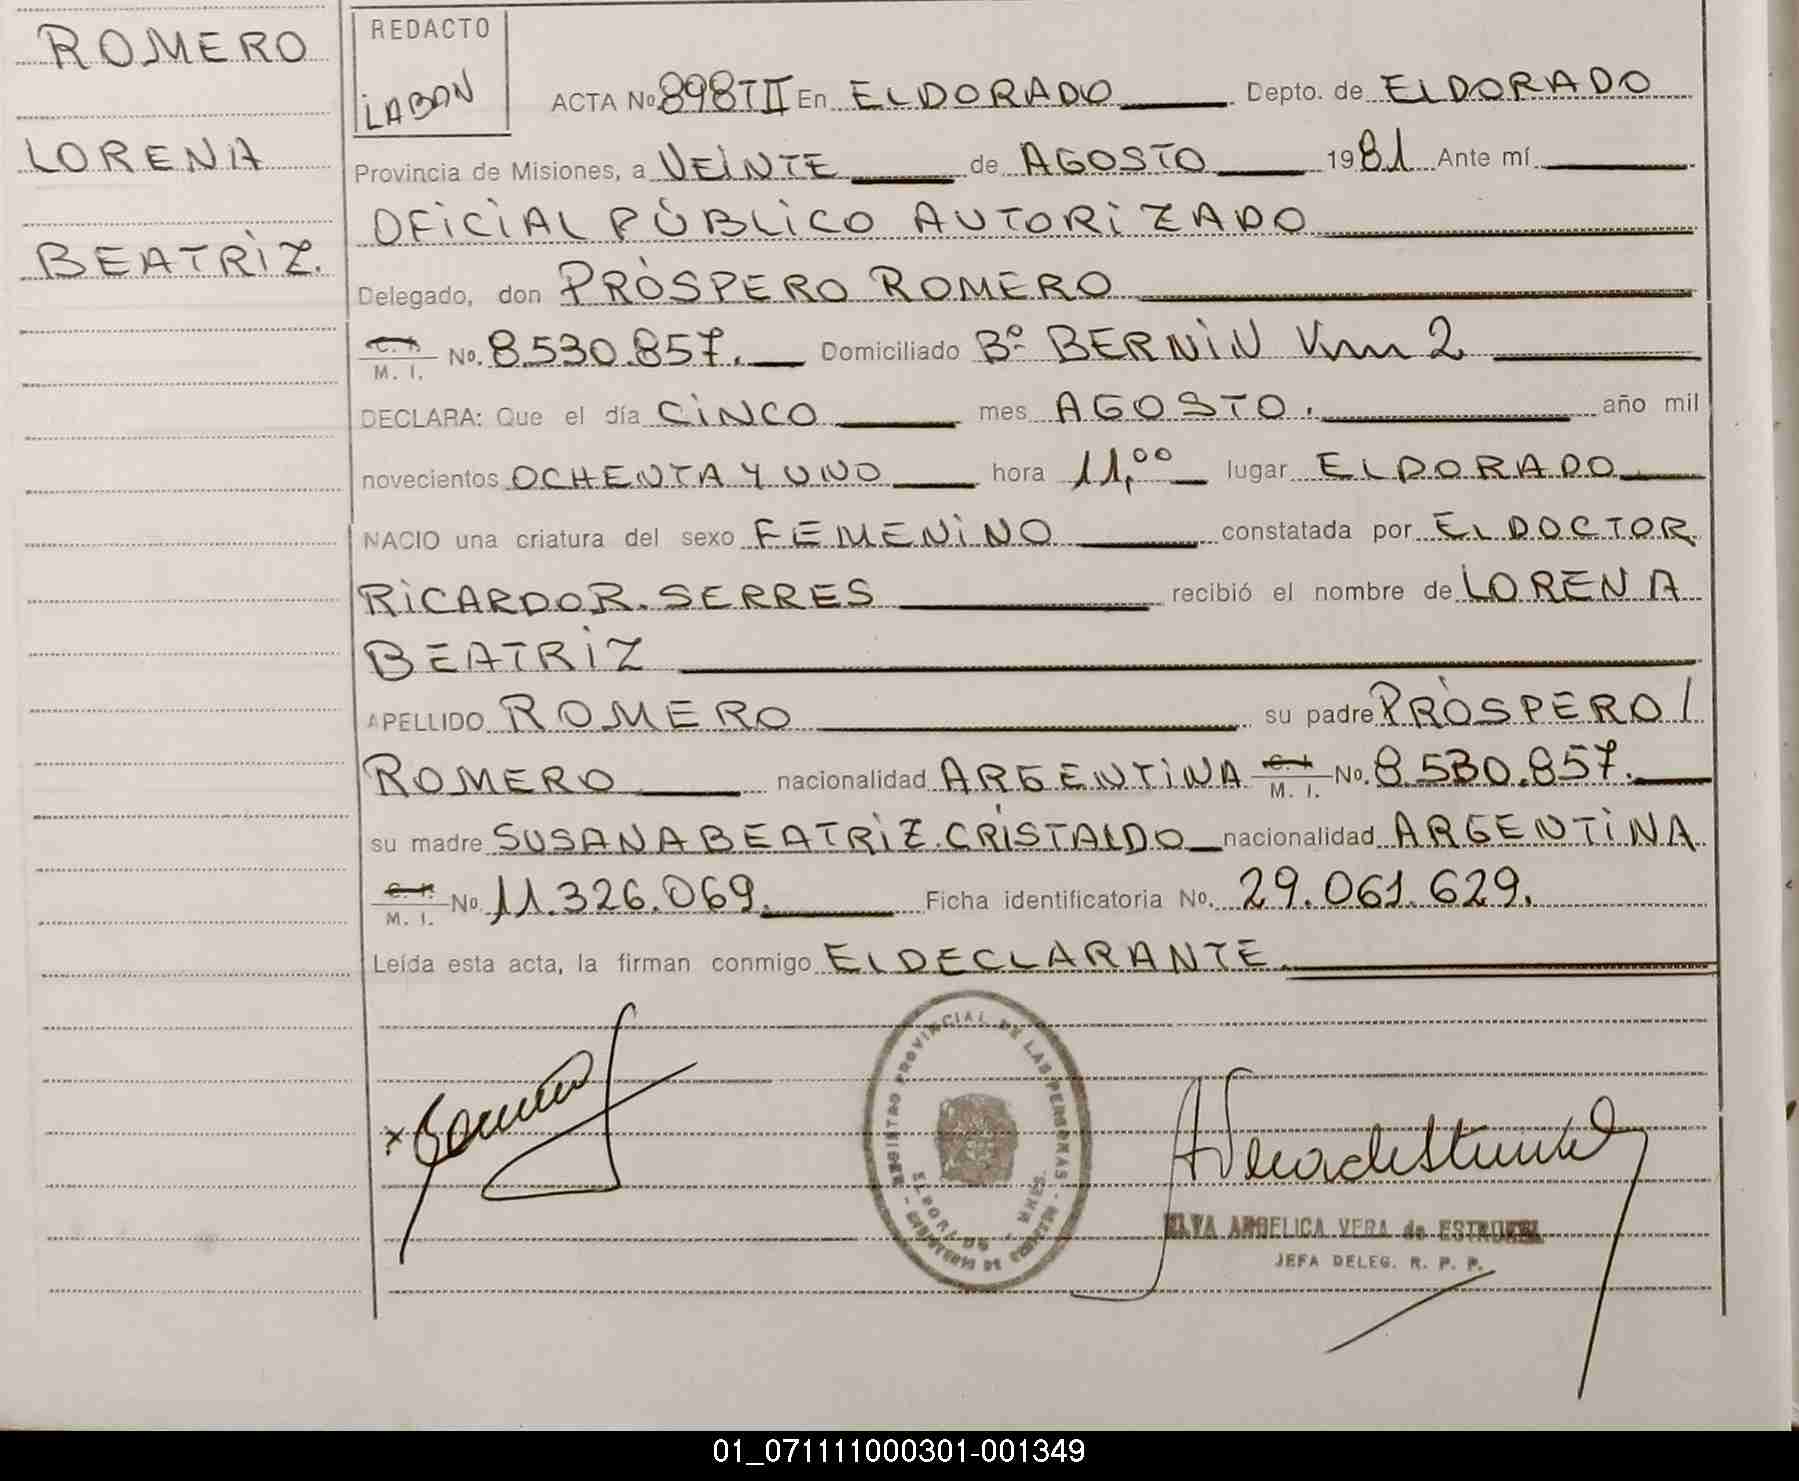 ROMERO
LORENA
BEATRIZ.
REDACTO
LABAN
ACTA No. 898 T II En ELDORADO Depto. de ELDORADO
Provincia de Misiones, a VEINTE de AGOSTO 1981 Ante mí
OFICIAL PÚBLICO AUTORIZADO
Delegado, don PRÓSPERO ROMERO
C. I. M. I. No. 8.530.857. Domiciliado Bº BERNIN Km 2
DECLARA: Que el día CINCO mes AGOSTO. año mil
novecientos OCHENTA Y UNO hora 11,00 lugar ELDORADO
NACIO una criatura del sexo FEMENINO constatada por EL DOCTOR
RICARDO R. SERRES recibió el nombre de LORENA
BEATRIZ
APELLIDO ROMERO su padre PRÓSPERO /
ROMERO nacionalidad ARGENTINA C. I. M. I. No. 8.530.857.
su madre SUSANA BEATRIZ CRISTALDO nacionalidad ARGENTINA
C. I. M. I. No. 11.326.069. Ficha identificatoria No. 29.061.629.
Leída esta acta, la firman conmigo EL DECLARANTE
REGISTRO PROVINCIAL DE LAS PERSONAS
ELDORADO MNES.
ELVA ANGELICA VERA de
JEFA DELEG. R. P. P.
01_071111000301-001349